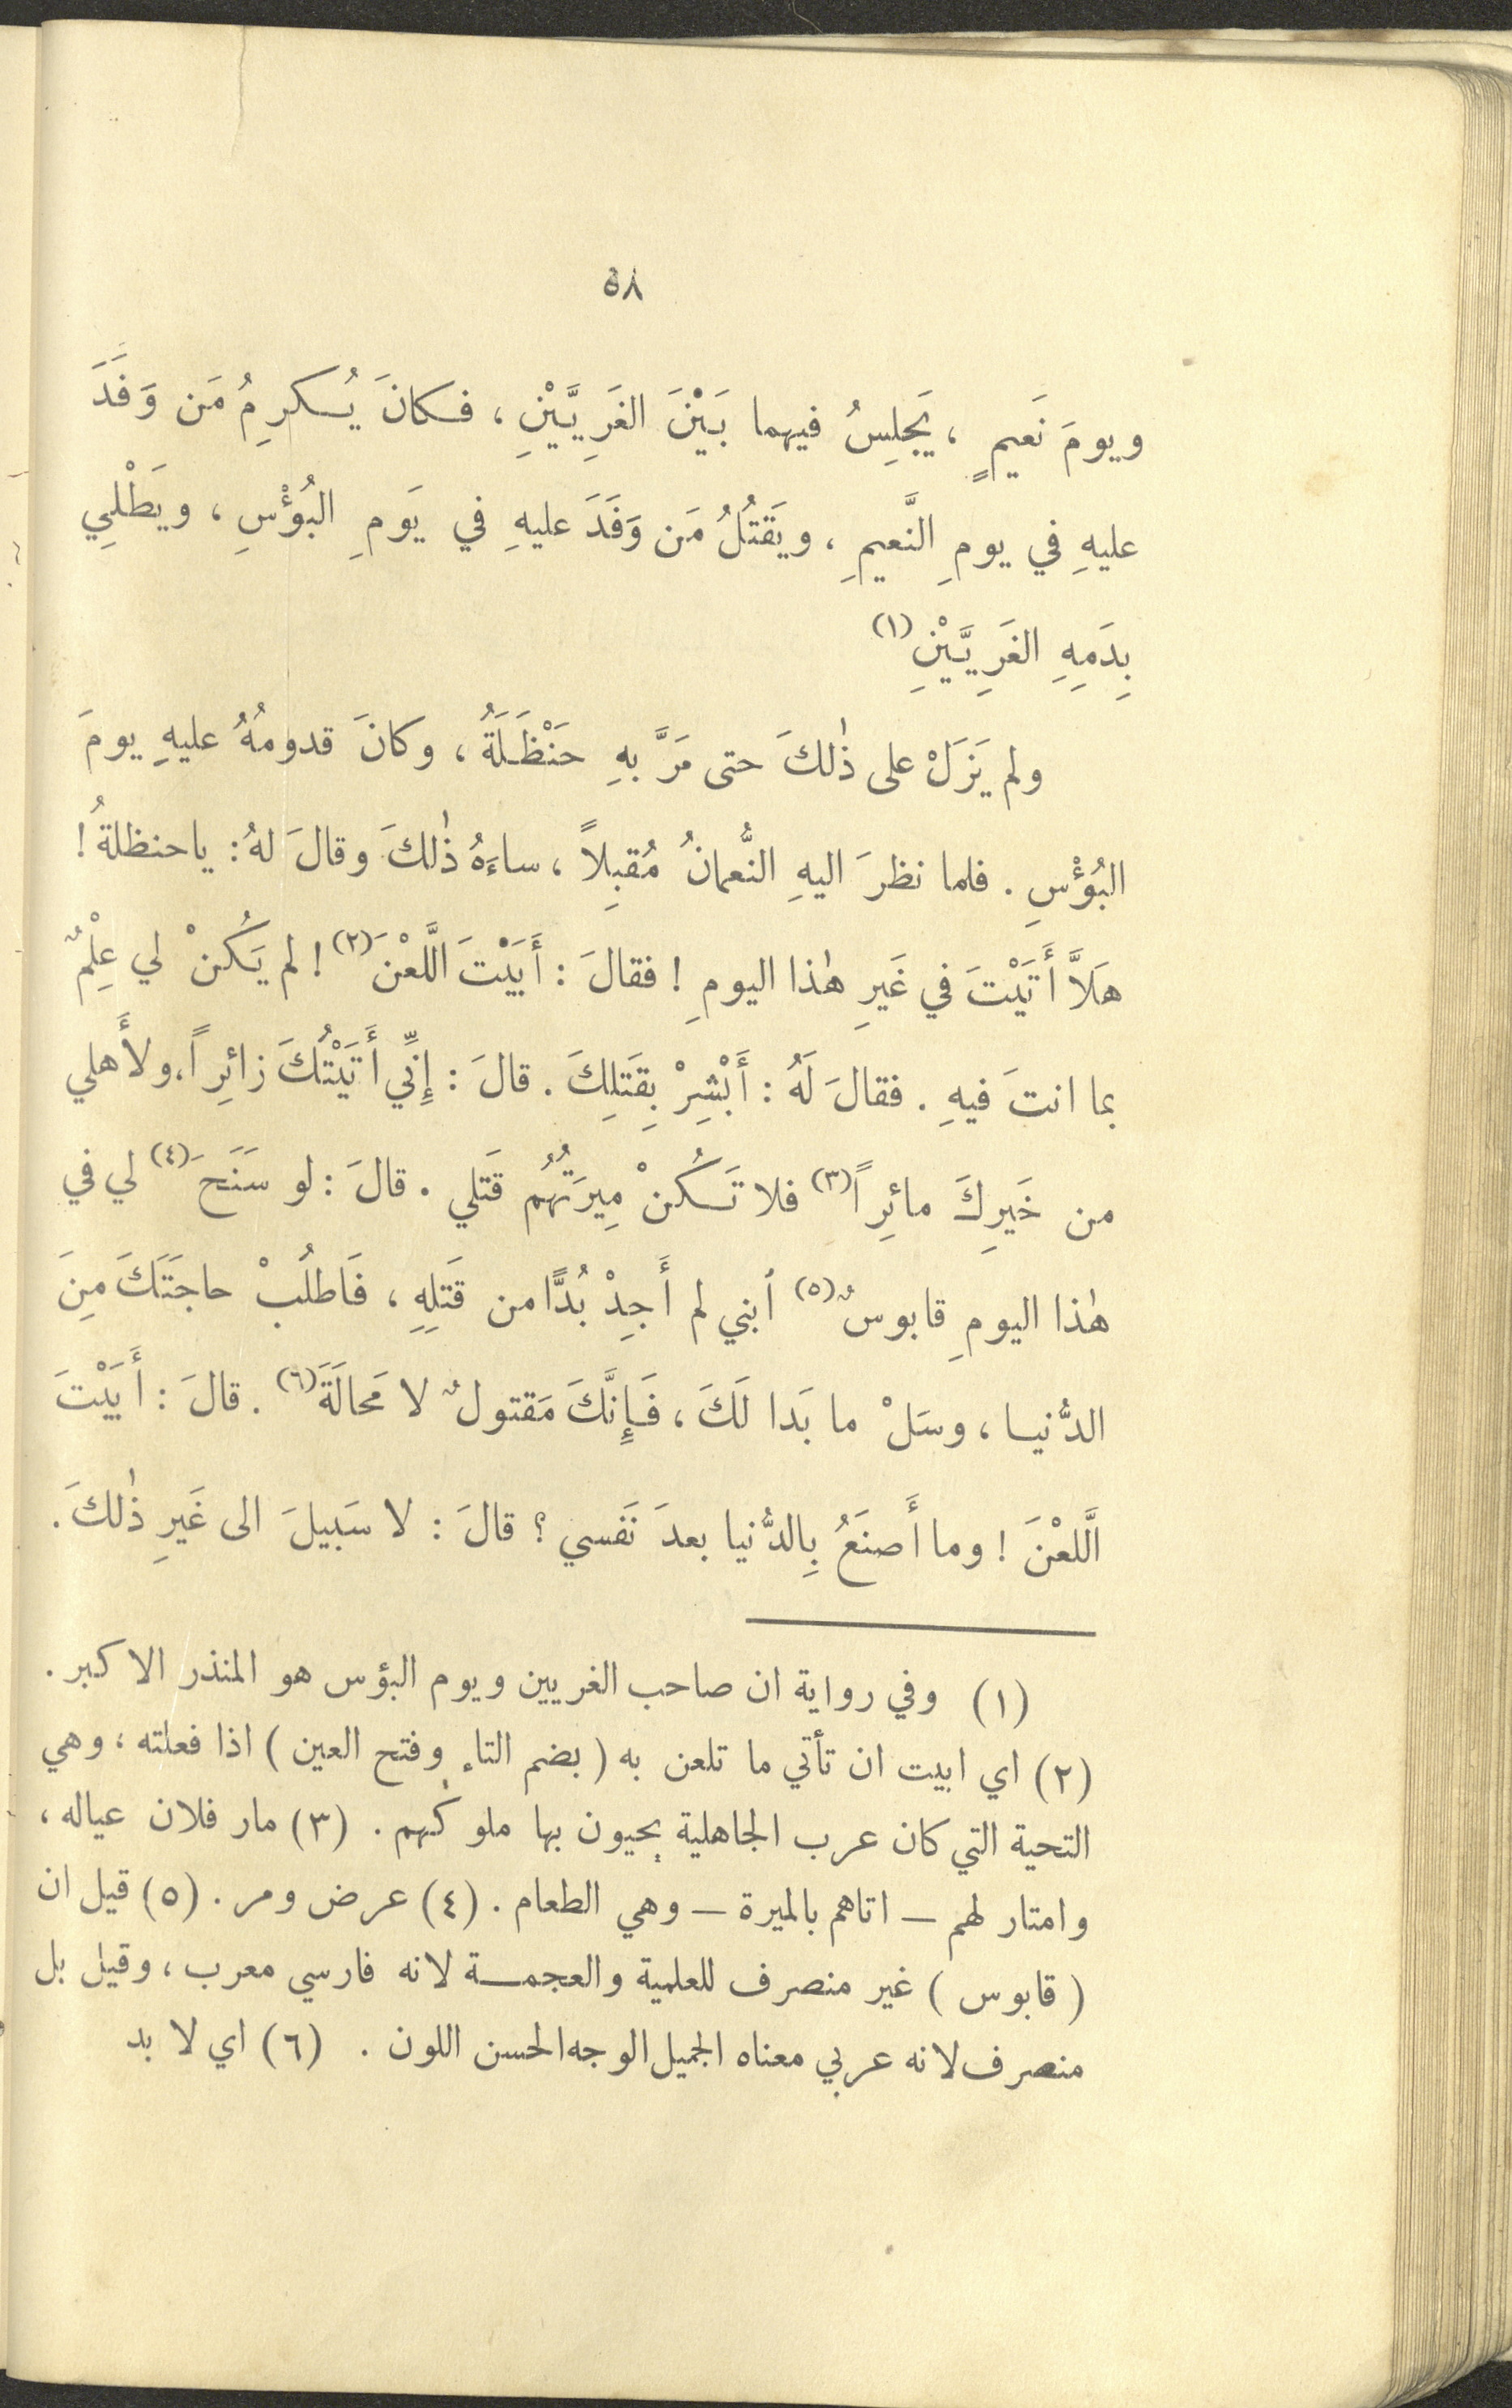 ٥٨
ويومَ نَعيمٍ ، يَجلِسُ فيهما بَيْنَ الغَرِيَّيْنِ ، فكانَ يُكرِمُ مَن وَفَدَ
عليهِ في يومِ النَّعيمِ ، ويَقتُلُ مَن وَفَدَ عليهِ في يَومِ البُؤْسِ ، ويَطْلِي
بِدَمِهِ الغَرِيَّيْنِ (١)
ولم يَزَلْ على ذٰلكَ حتى مَرَّ بهِ حَنْظَلَةُ ، وكانَ قدومُهُ عليهِ يومَ
البُؤْسِ . فلما نظرَ اليهِ النُّعمانُ مُقبِلاً ، ساءَهُ ذٰلكَ وقالَ لهُ : ياحنظلةُ !
هَلاَّ أَتَيْتَ في غَيرِ هٰذا اليومِ ! فقالَ : أَبَيْتَ اللَّعْنَ (٢) ! لم يَكُنْ لي عِلْمٌ
بما انتَ فيهِ . فقالَ لَهُ : أَبْشِرْ بِقَتلِكَ . قالَ : إِنِّي أَتَيْتُكَ زائِراً ، ولأَهلي
من خَيرِكَ مائِراً (٣) فلا تَكُنْ مِيرَتُهُم قَتلي . قالَ : لو سَنَحَ (٤) لي في
هٰذا اليومِ قابوسٌ (٥) أبني لم أَجِدْ بُدًّا من قَتلِهِ ، فَاطلُبْ حاجَتَكَ مِنَ
الدُّنيا ، وسَلْ ما بَدا لَكَ ، فَإِنَّكَ مَقتولٌ لا مَحالَةَ (٦) . قالَ : أَبَيْتَ
الَّلعْنَ ! وما أَصنَعُ بِالدُّنيا بعدَ نَفسي ؟ قالَ : لا سَبيلَ الى غَيرِ ذٰلكَ .
(١) وفي رواية ان صاحب الغريين ويوم البؤس هو المنذر الاكبر .
(٢) اي ابيت ان تأتي ما تلعن به ( بضم التاء وفتح العين ) اذا فعلته ، وهي
التحية التي كان عرب الجاهلية يحيون بها ملوكهم . (٣) مار فلان عياله ،
وامتار لهم – اتاهم بالميرة – وهي الطعام . (٤) عرض ومر . (٥) قيل ان
( قابوس ) غير منصرف للعلمية والعجمة لانه فارسي معرب ، وقيل بل
منصرف لانه عربي معناه الجميل الوجه الحسن اللون . (٦) اي لا بد